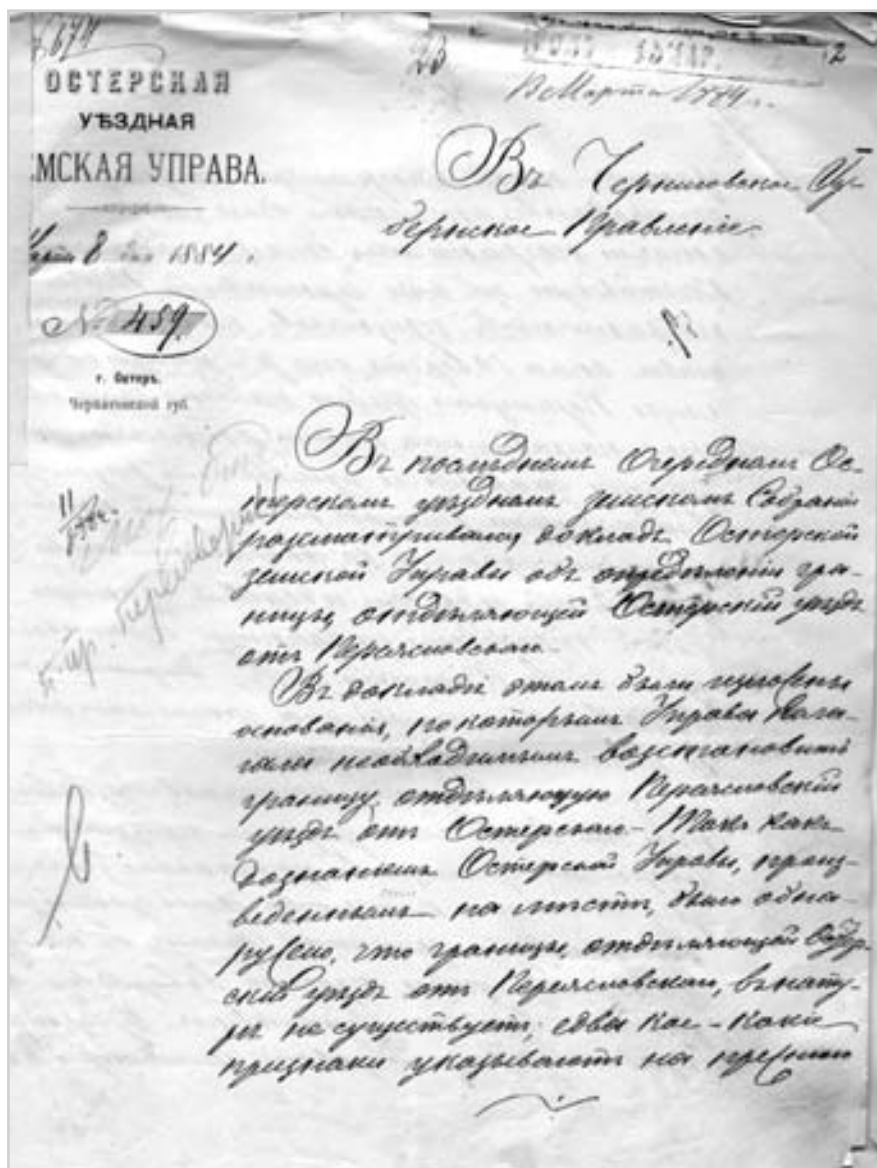 674
ОСТЕРСКАЯ
УѢЗДНАЯ
ЗЕМСКАЯ УПРАВА.
Марта 8 дня 1884 г.
№ 459.
г. Остеръ.
Черниговской губ.
23
2
13 Марта 1884 г.
Въ Черниговское Гу-
бернское Правленіе.
Въ послѣднемъ очередномъ Ос-
терскомъ уѣздномъ земскомъ Собраніи
разсматривался докладъ Остерской
земской Управы объ опредѣленіи гра-
ницы, отдѣляющей Остерскій уѣздъ
отъ Переяславскаго.
Въ докладѣ этомъ были изложены
основанія, по которымъ Управа пола-
гала необходимымъ возстановить
границу, отдѣляющую Переяславскій
уѣздъ отъ Остерскаго. Такъ какъ
дознаніемъ Остерской Управы, произ-
веденнымъ на мѣстѣ, было обна-
ружено, что границы, отдѣляющей Остер-
скій уѣздъ отъ Переяславскаго, въ нату-
рѣ не существуетъ; едва кое-какіе
признаки указываютъ на прежнюю